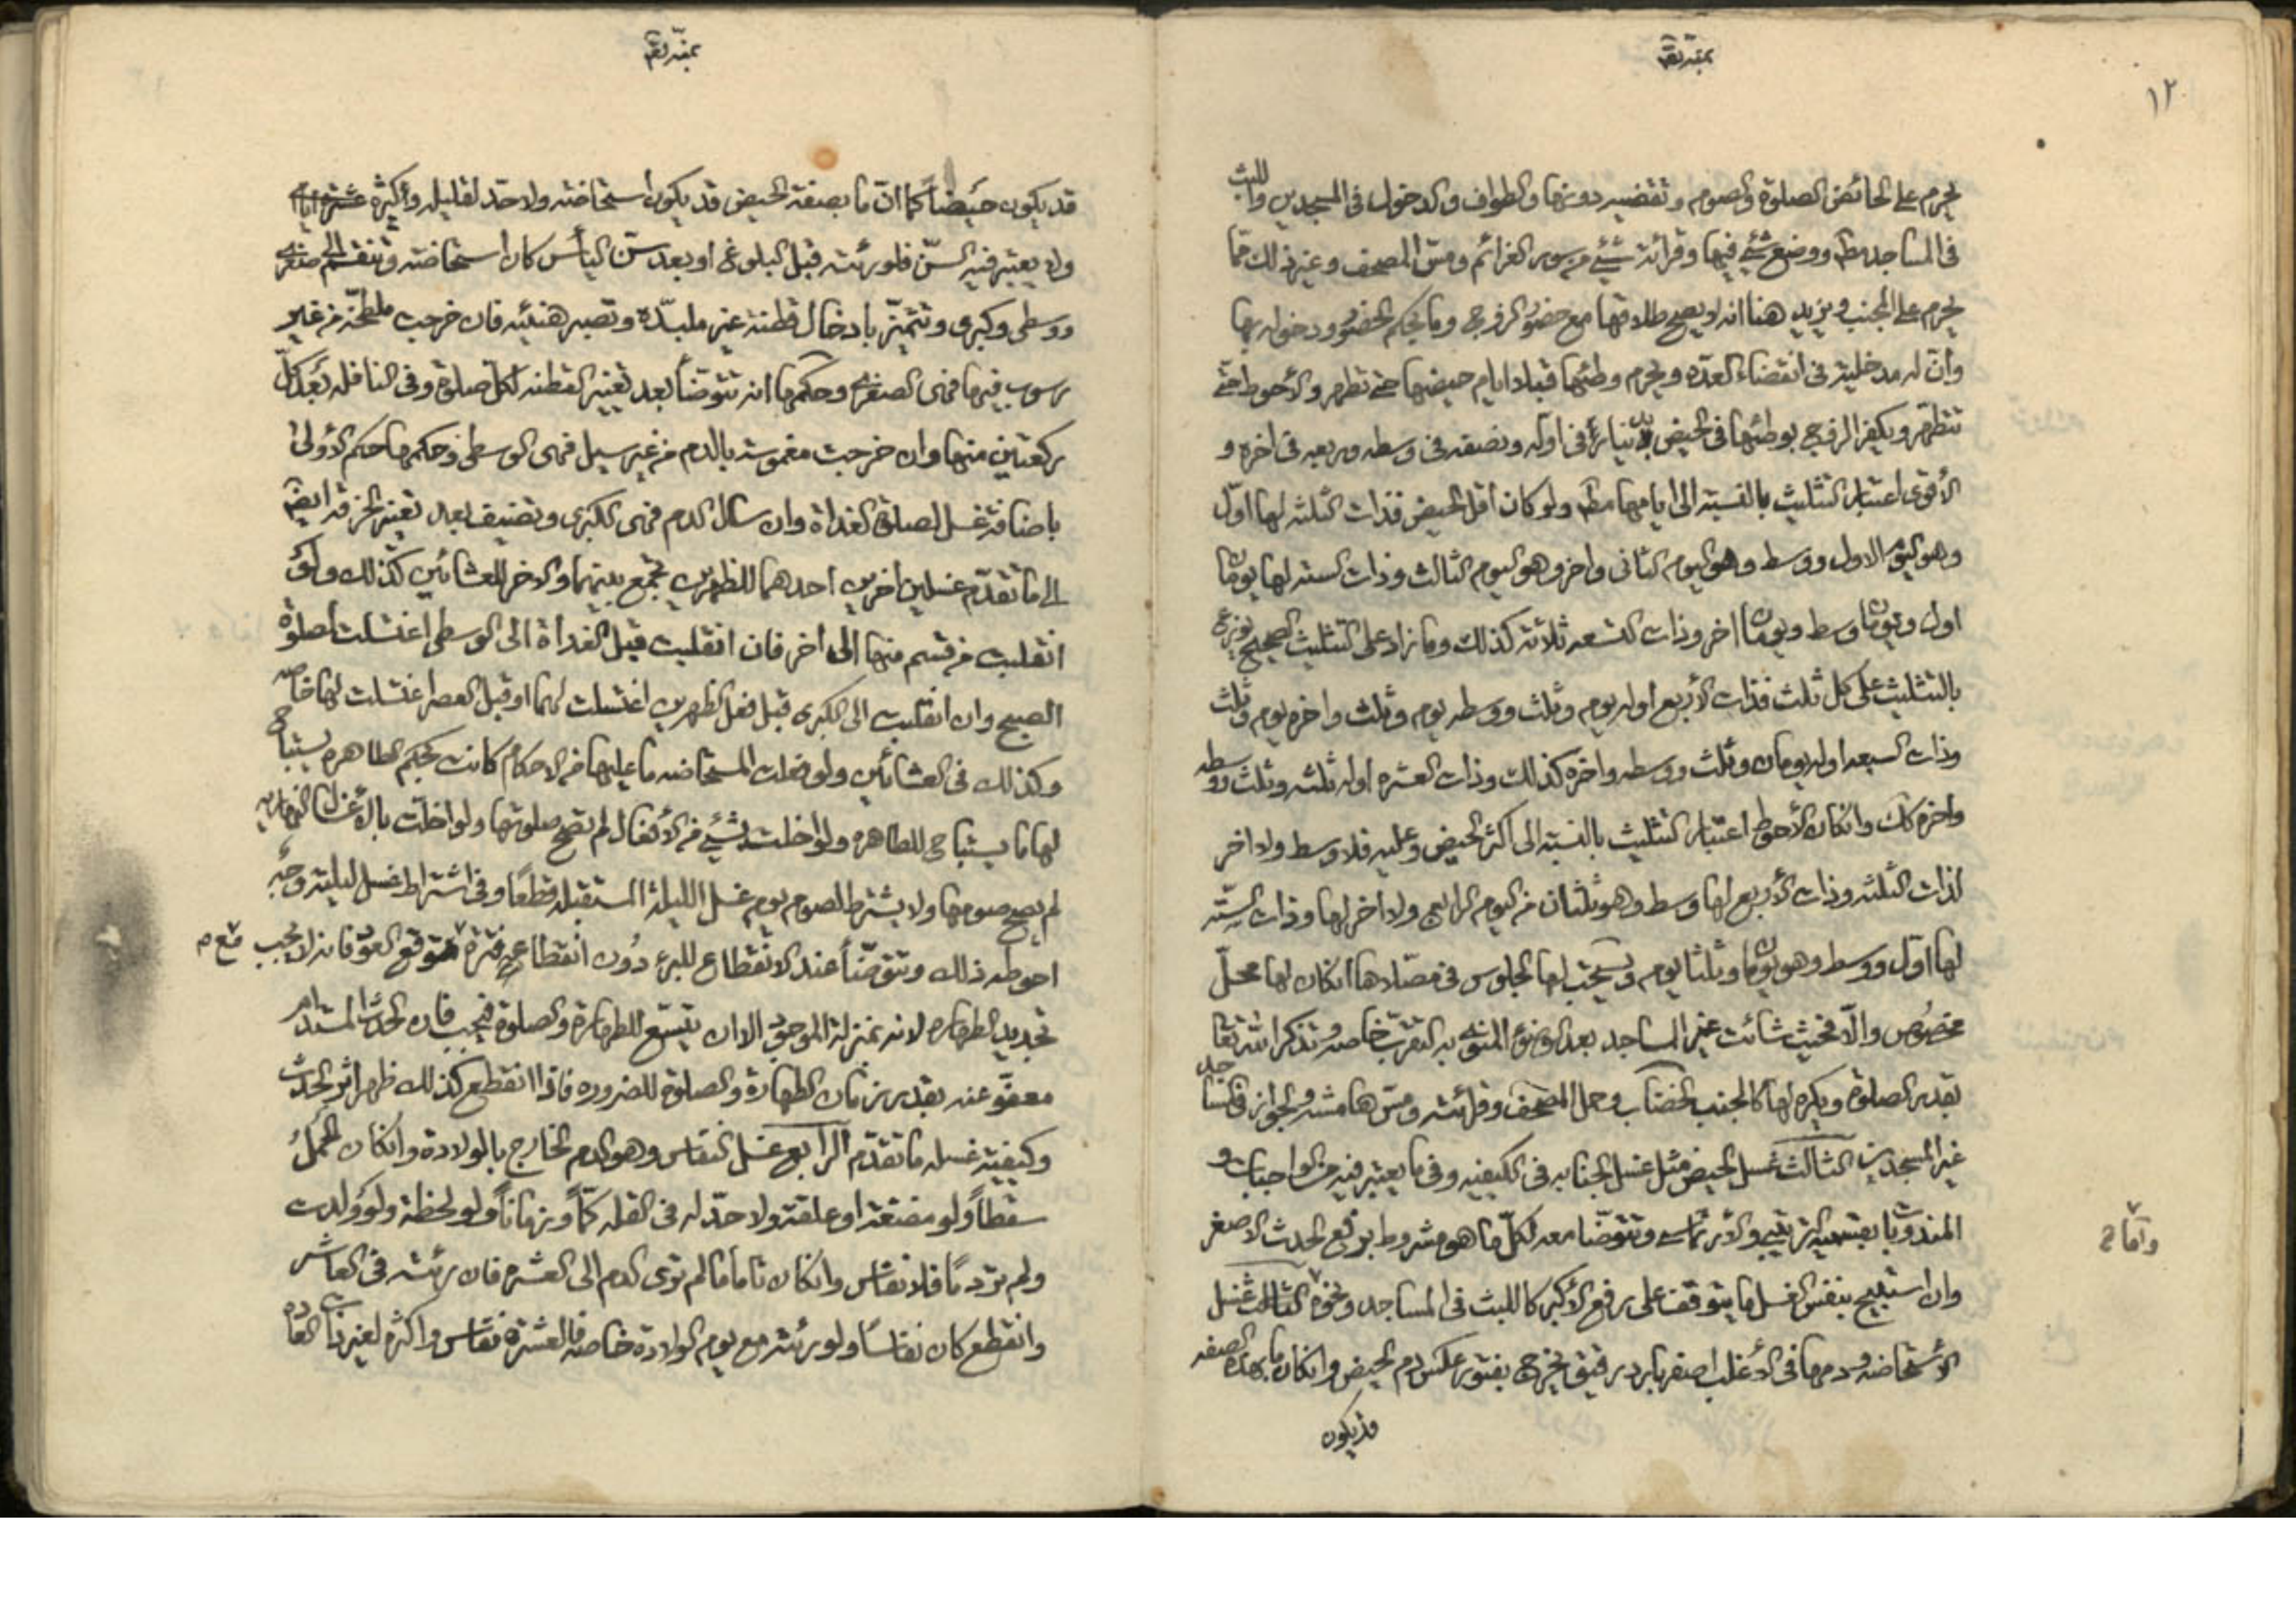 ١٢
يحرم على الحائض الصلوة والصوم وتقضيه دونها والطواف والدخول فى المسجدين واللبث
فى المساجد مطا ووضع شئ فيها وقرائة شئ من سور العزائم ومس المصحف وغير ذلك مما
يحرم على الجنب ويزيد هنا انه لا يصح طلاقها مع حضور الزوج وما بحكم الحضور ودخوله بها
وان له مدخلية فى انقضاء العدة ويحرم وطئها قبلا ايام حيضها حتى تطهر والأحوط حتى
تتطهر ويكفر الزوج بوطئها فى الحيض بدينار فى اوله ونصفه فى وسطه وربعه فى اخره و
الأقوى اعتبار التثليث بالنسبة الى ايامها مطا ولو كان اقل الحيض فذات الثلثه لها اول
وهو اليوم الاول ووسط وهو اليوم الثانى واخر وهو اليوم الثالث وذات السته لها يومان
اول ويومان وسط ويومان اخر وذات التسعه ثلاثة كذلك وما زاد على التثليث الصحيح يوزع
بالتثليث على كل ثلث فذات الأربع اوله يوم وثلث ووسطه يوم وثلث واخره يوم وثلث
وذات السبعه اوله يومان وثلث ووسطه واخره كذلك وذات العشره اوله ثلثه وثلث ووسطه
واخره كك وانكان الأحوط اعتبار التثليث بالنسبة الى اكثر الحيض وعليه فلا وسط ولا اخر
لذات الثلثه وذات الأربع لها وسط وهو ثلثان من اليوم الرابع ولا اخر لها وذات الستّه
لها اول ووسط وهو يومان وثلثا يوم ويستحب لها الجلوس فى مصلاها انكان لها محلّ
مخصوص والّا فحيث شائت غير المساجد بعد الوضوء المنوى به التقرب خاصه وتذكر الله تعا
بقدر الصلوة ويكره لها كالجنب الخضاب وحمل المصحف وقرائته ومس هامشه والجواز فى المساجد
غير المسجدين الثالث غسل الحيض مثل غسل الجنابه فى الكيفيه وفى ما يعتبر فيه من الواجبات و
المندوبات بقسميه الترتيبى والأرتماسى وتتوضّا معه لكلّ ما هو مشروط برفع الحدث الاصغر
وامّا
وان استبيح بنفس الغسل ما يتوقف على رفع الأكبر كاللبث فى المساجد ونحوه الثالث غسل
الأستحاضه ودمها فى الأغلب اصفر بارد رقيق يخرج بفتور عكس دم الحيض وانكان ما بهذه الصفه
قد يكون
قد يكون حيضاً كما انّ ما بصفة الحيض قد يكون استحاضه ولا حدّ لقليله وأكثره
ولا يعتبر فيه السنّ فلو رئته قبل البلوغ او بعد سنّ اليأس كان استحاضه وتنقسم الى صغرى
ووسطى وكبرى وتتميّز بادخال قطنة غير ملبّدة وتصبر هنيئه فان خرجت ملطّخه من غير
رسوب فيها فهى الصغرى وحكمها انه تتوضّأ بعد تغيير القطنه لكلّ صلوة وفى النافله بعد كلّ
ركعتين منها وان خرجت مغموسة بالدم من غير سيل فهى الوسطى وحكمها حكم الأولى
باضافة غسل لصلوة الغداة وان سال الدم فهى الكبرى وتضيف بعد تغيير الخرقه ايضا
الى ما تقدّم غسلين اخرين احدهما للظهرين تجمع بينهما والاخر للعشائين كذلك ولو
انقلبت من قسم منها الى اخر فان انقلبت قبل الغداة الى الوسطى اغتسلت لصلوة
الصبح وان انقلبت الى الكبرى قبل فعل الظهرين اغتسلت لهما او قبل العصر اغتسلت لها خاصه
وكذلك فى العشائين ولو فعلت المستحاضه ما عليها من الاحكام كانت بحكم الطاهره يستباح
لها ما يستباح للطاهره ولو اخلت بشئ من الأفعال لم تصح صلوتها ولو اخلّت بالأغسال النهاريه
لم يصح صومها ولا يشترط لصوم يوم غسل الليلة المستقبله قطعا وفى اشتراط غسل ليلته وجه
احوطه ذلك وتتوضّأ عند الانقطاع للبرء دون انقطاع فترة متوقع العود فانه لا يجب
تجديد الطهاره لانه بمنزلة الموجود الا ان يتسع للطهارة والصلوة فيجب فان الحدث المستدام
معفوّ عنه بقدر زمان الطهارة والصلوة للضروره فاذا انقطع كذلك ظهر اثر الحدث
وكيفية غسله ما تقدّم الرابع غسل النفاس وهو الدم الخارج بالولادة وانكان الحمل
سقطاً ولو مضغة او علقة ولا حدّ له فى القله كمّاً وزماناً ولو لحظة ولو ولدت
ولم تر دماً فلا نفاس وانكان تاما ما لم ترى الدم الى العشره فان رئته فى العاشر
وانقطع كان نفاساً ولو رئته مع يوم الولادة خاصه فالعشرة نفاس واكثره لغير ذات العاده